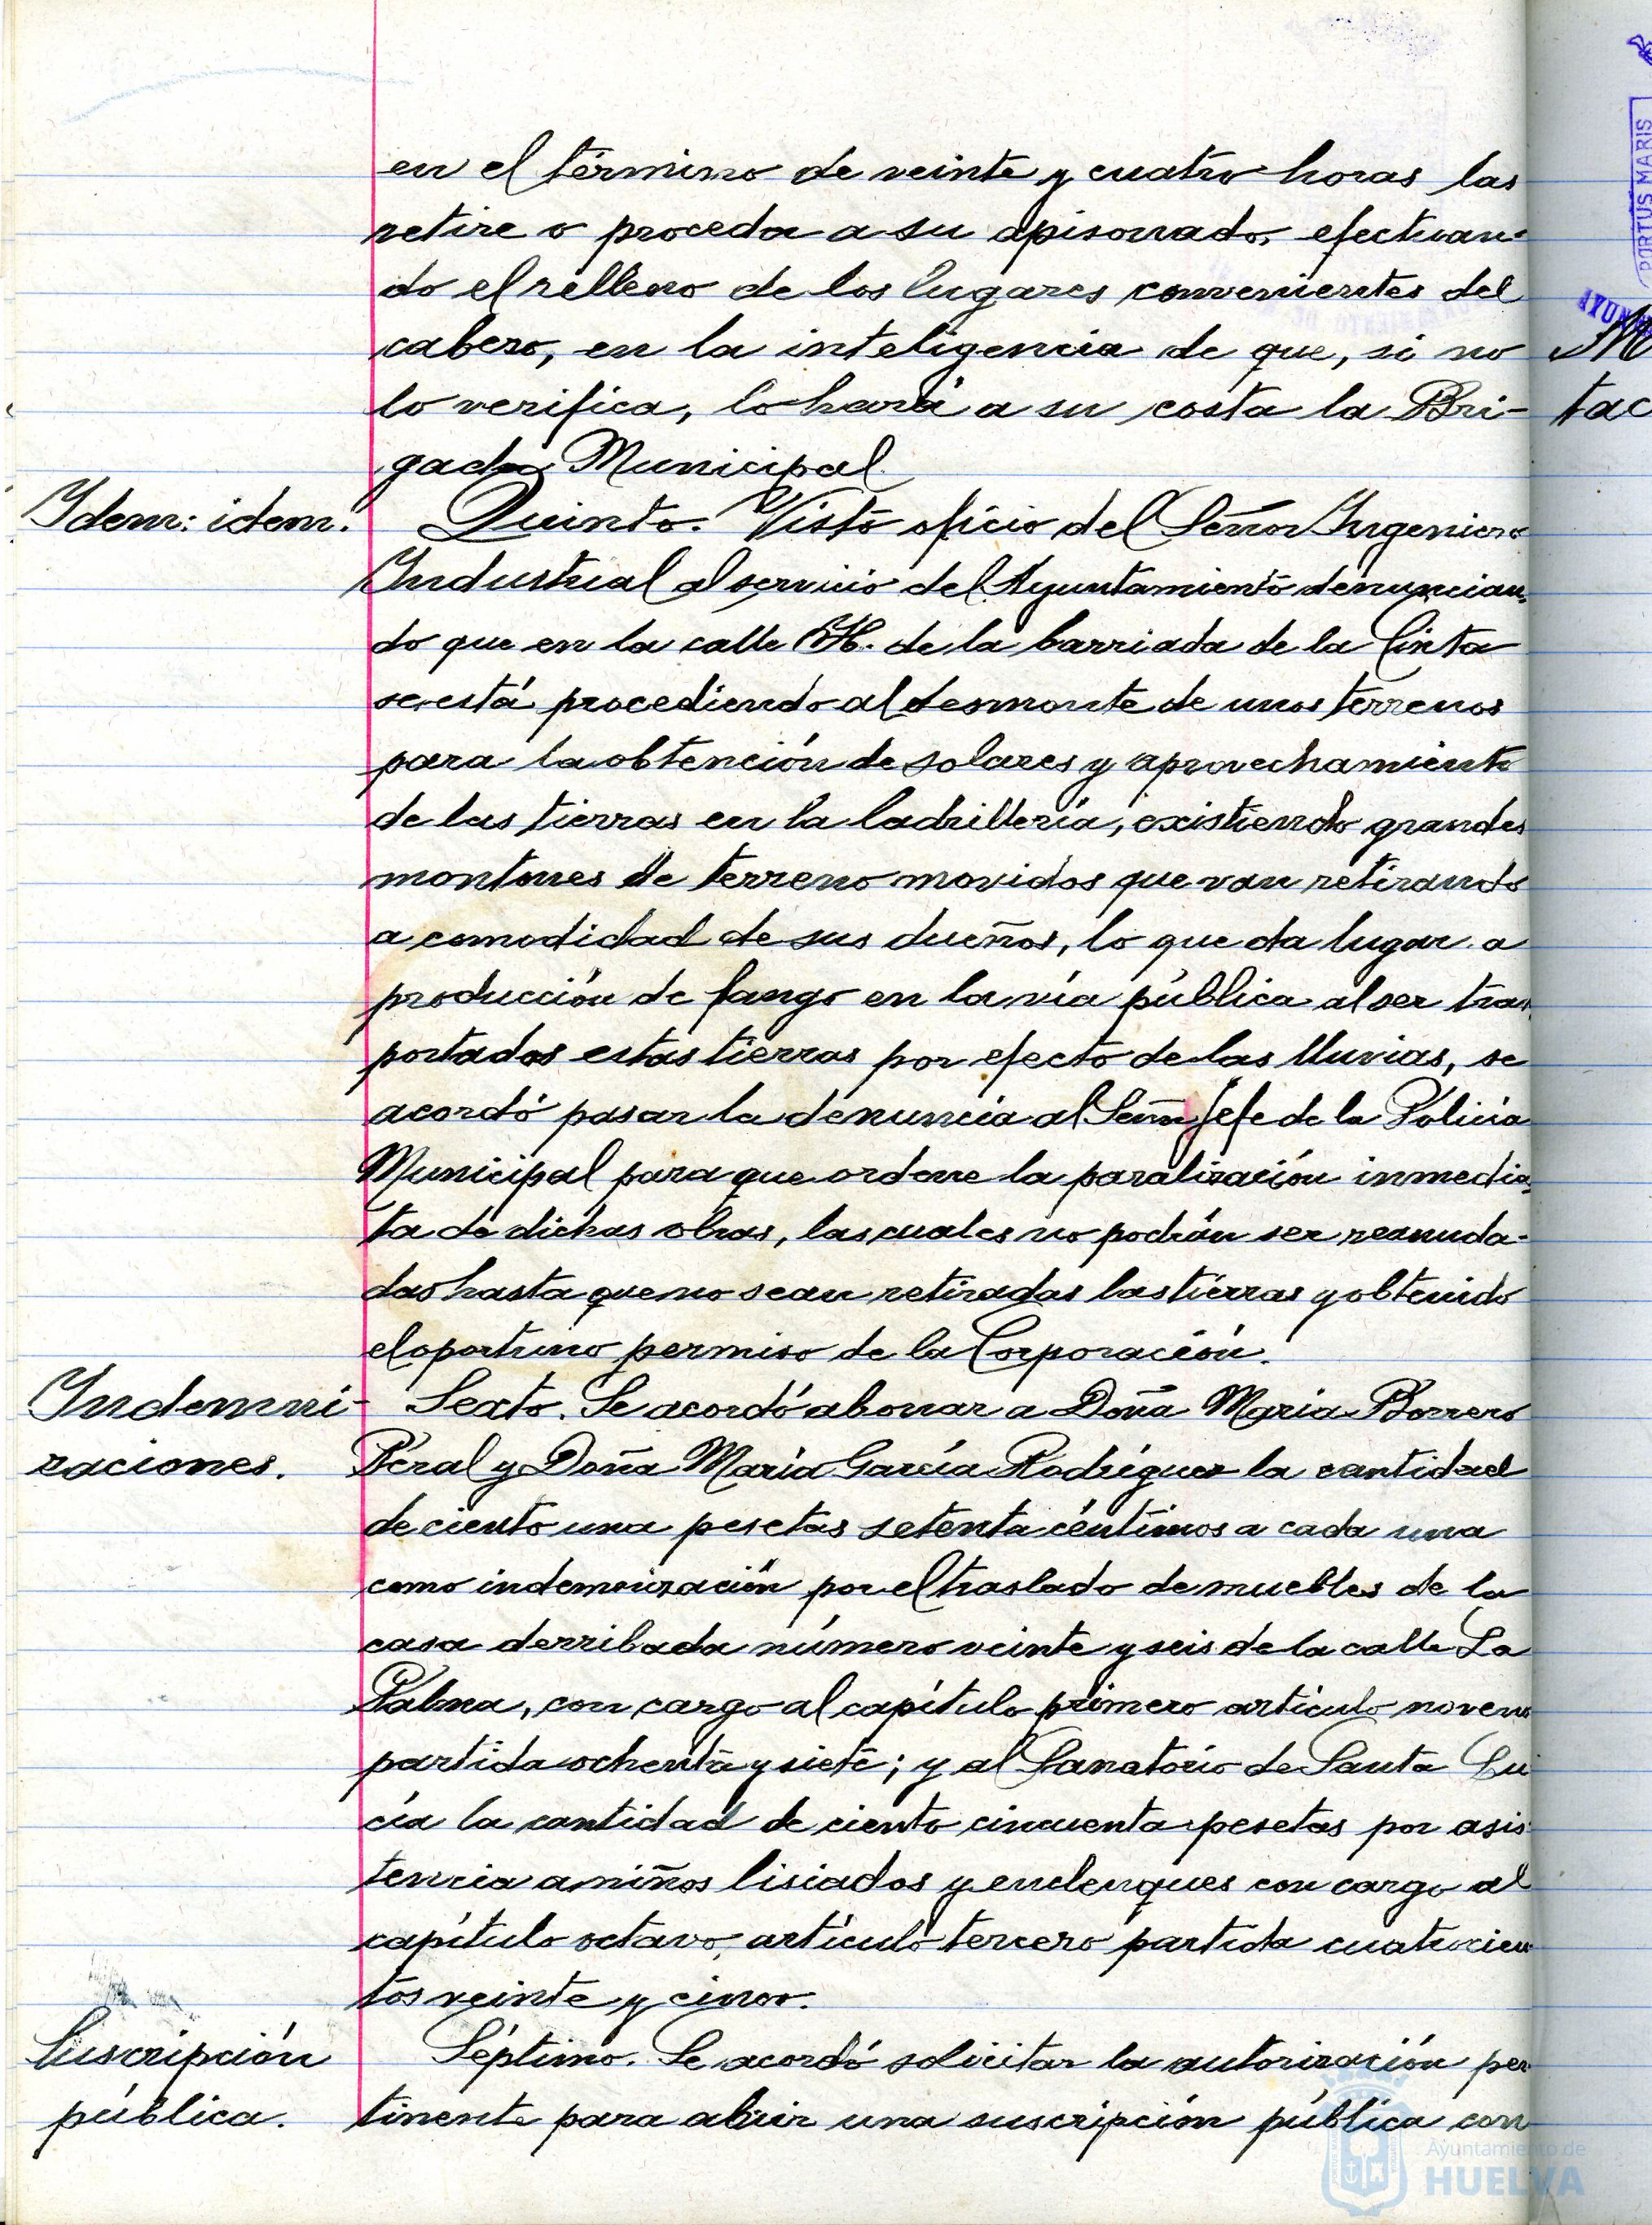 en el término de veinte y cuatro horas las
retire o proceda a su apisonado, efectuan-
do el relleno de los lugares convenientes del
cabezo, en la inteligencia de que, si no
lo verifica, lo hará a su costa la Bri-
gada Municipal
Idem: idem.
Quinto. Visto oficio del Señor Ingeniero
Industrial al servicio del Ayuntamiento denuncian-
do que en la calle H. de la barriada de la Cinta
se está procediendo al desmonte de unos terrenos
para la obtención de solares y aprovechamiento
de las tierras en la ladrillería, existiendo grandes
montones de terreno movidos que van retirando
a comodidad de sus dueños, lo que da lugar a
producción de fango en la vía pública al ser tras-
portados estas tierras por efecto de las lluvias, se
acordó pasar la denuncia al Señor Jefe de la Policia
Municipal para que ordene la paralización inmedia-
ta de dichas obras, las cuales no podrán ser reanuda-
das hasta que no sean retiradas las tierras y obtenido
el oportuno permiso de la Corporación.
Indemni-
zaciones.
Sexto. Se acordó abonar a Doña Maria Borrero
Peral y Doña María García Rodríguez la cantidad
de ciento una pesetas setenta céntimos a cada una
como indemnización por el traslado de muebles de la
casa derribada número veinte y seis de la calle La
Palma, con cargo al capítulo primero artículo noveno
partida ochenta y siete; y al Sanatorio de Santa Lu
cía la cantidad de ciento cincuenta pesetas por asis-
tencia a niños lisiados y enclenques con cargo al
capítulo octavo, artículo tercero partida cuatrocien
tos veinte y cinco.
Suscripción
pública.
Séptimo. Se acordó solicitar la autorización per
tinente para abrir una suscripción pública con
PORTUS MARIS
AYUN
M
tac
Ayuntamiento de
HUELVA